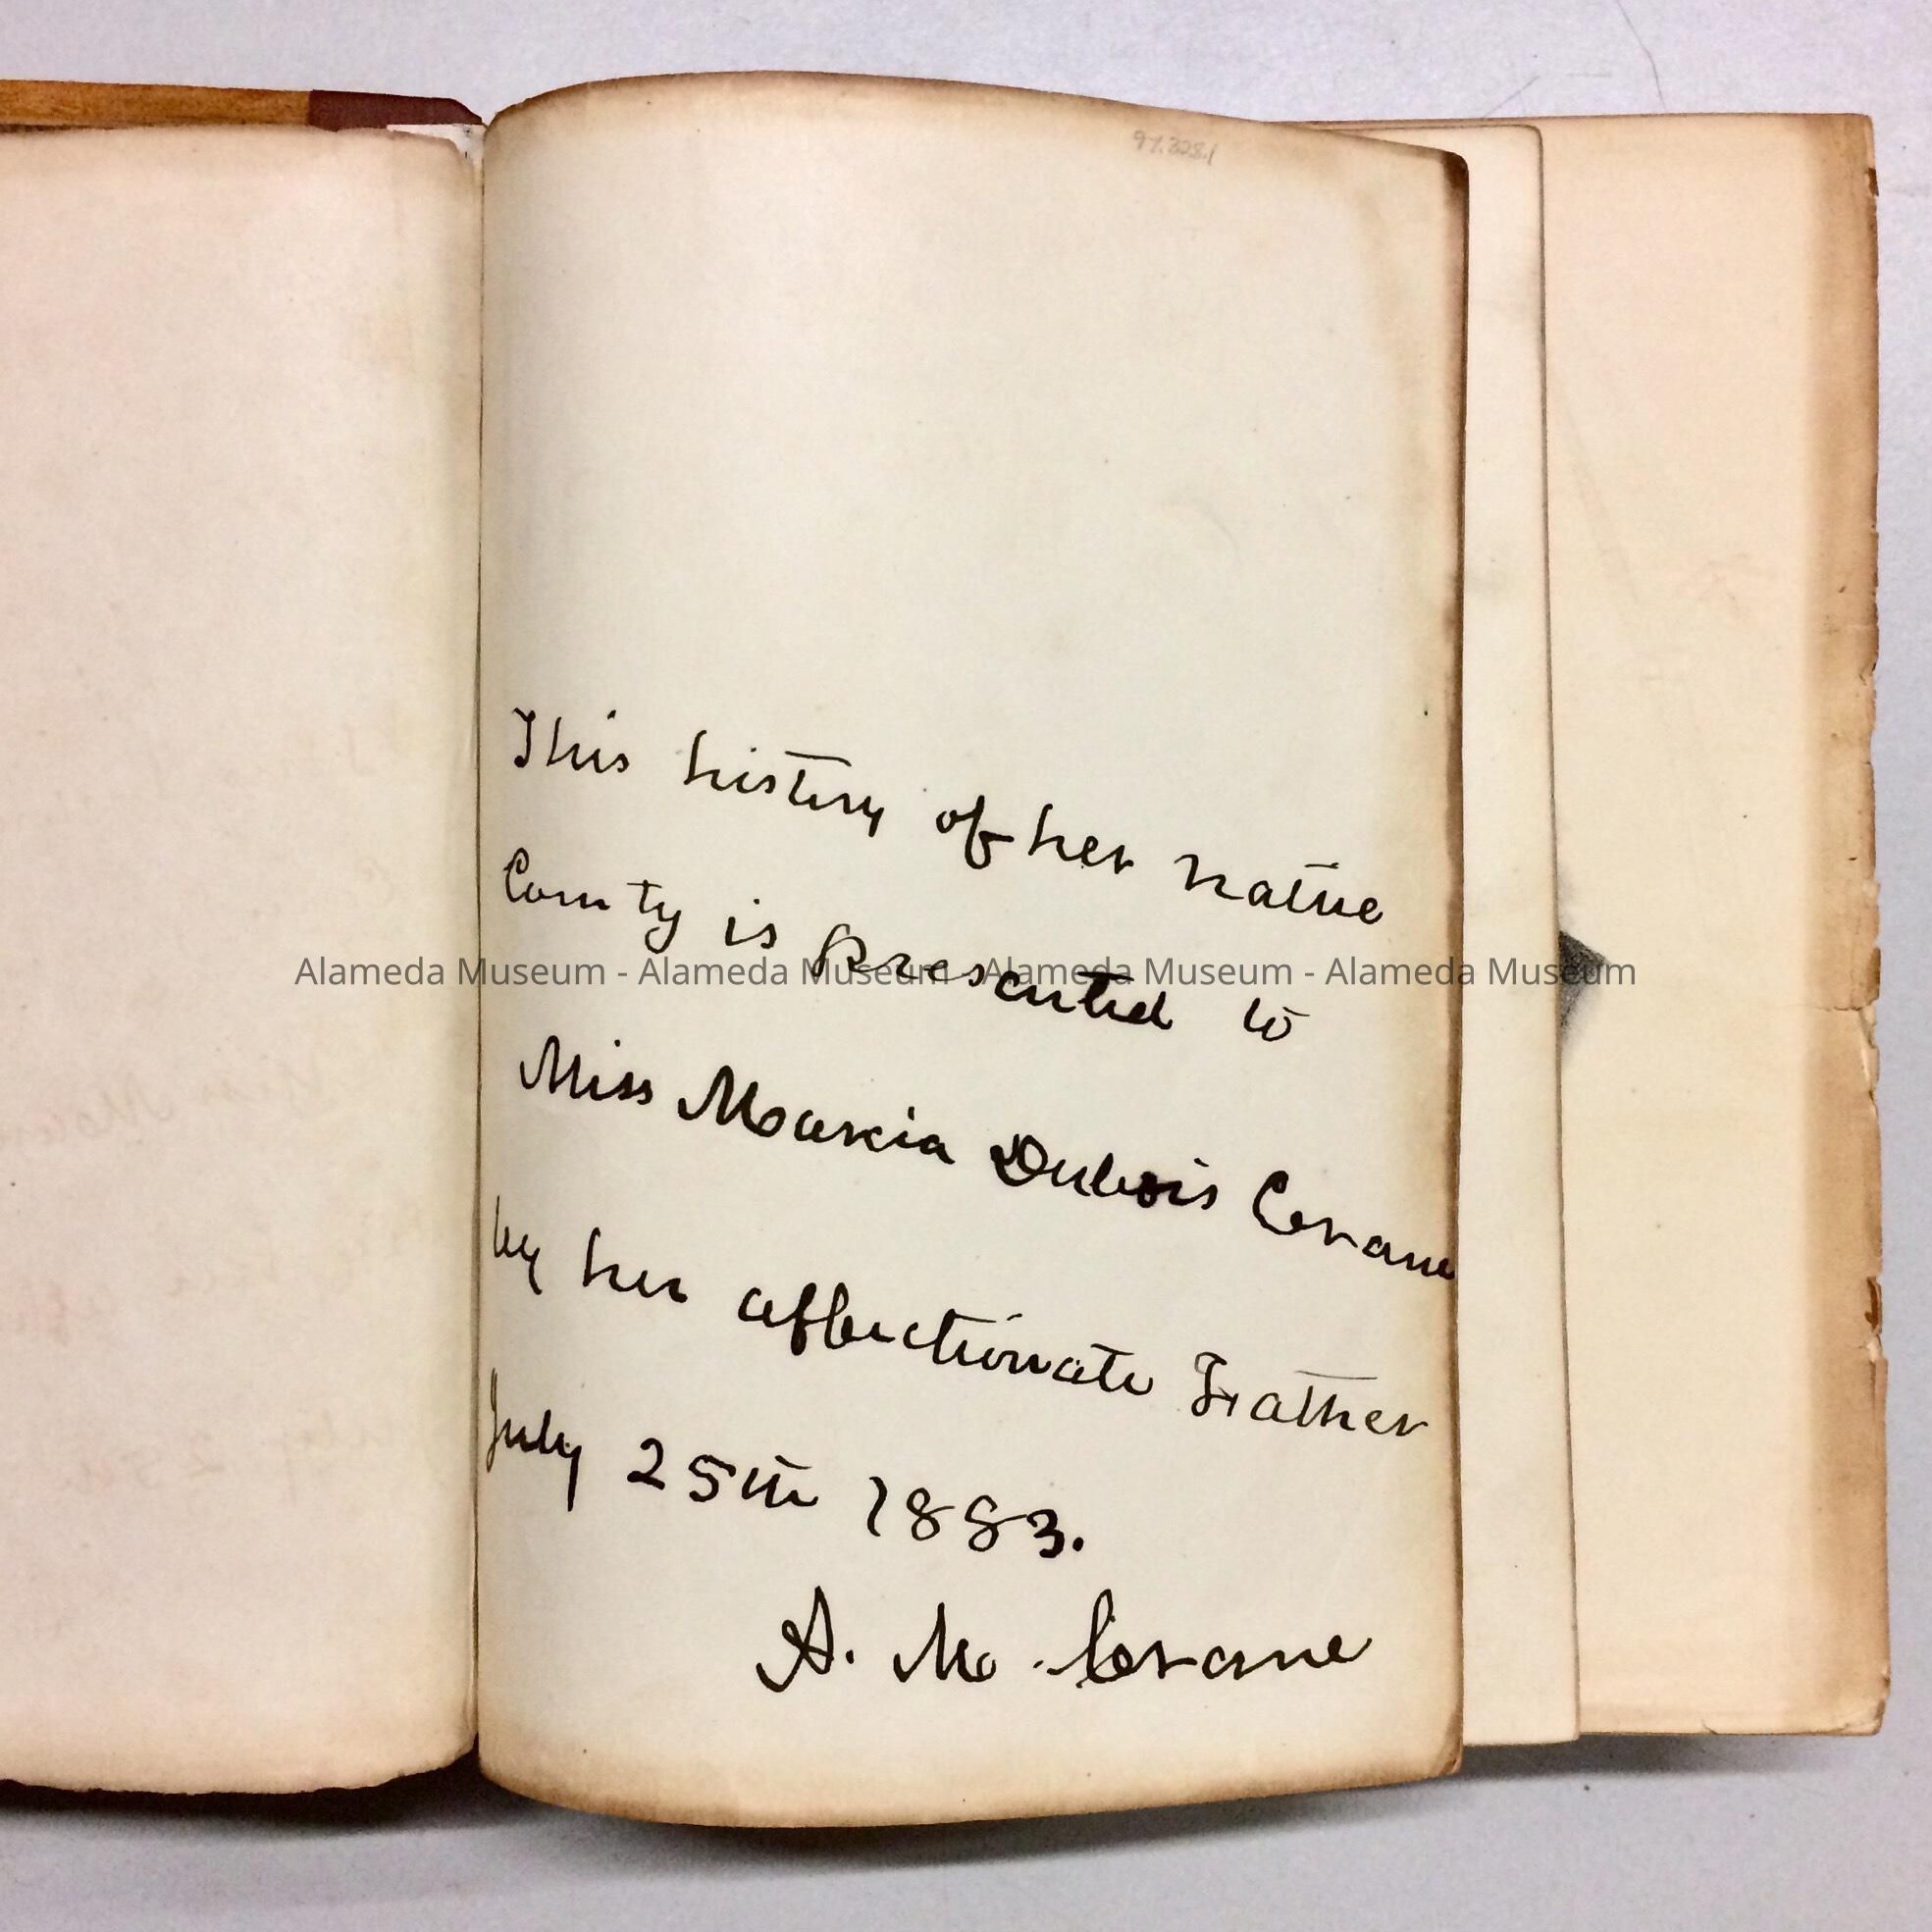 97.328.1
This history of her native
County is Presented to
Alameda Museum - Alameda Museum - Alameda Museum - Alameda Museum
Miss Marcia Dubois Crane
by her affectionate Father
July 25th 1883.
A. M. Crane